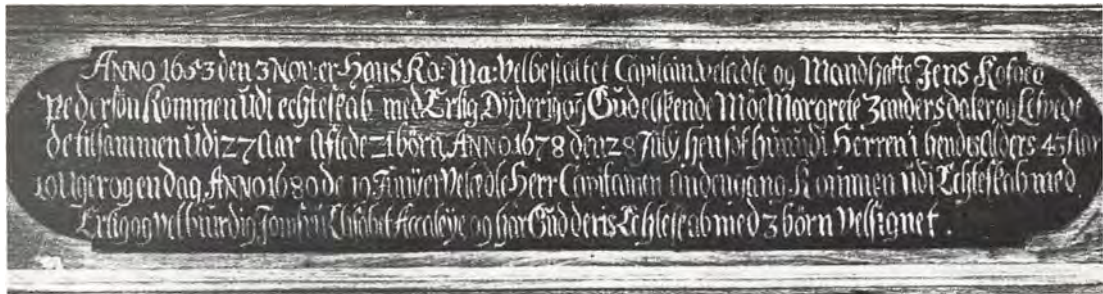 ANNO 1653 den 3 Nov: er Hans Ko: Ma: Velbestaltet Capitain Veledle og Mandhafte Jens Kofoeg
Pedersön Kommen udi echteskab med Erlig Dÿderig og Gudelskende Möe Margrete Zandersdater og Lefvede
de tilsammen udi 27 Aar Aflede 21 börn, ANNO 1678 den 28 Julÿ hensof hun udi Herren i hendis Alders 43 Aar
10 Uger og en dag, ANNO 1680 de 19 Veledle Herr Capitainen anden gang Kommen udi Echteskab med
Erlig og Velbûrdig Jomfru Elisabet Accaleÿe og har Gud deris Echteskab med 3 börn Velsignet.